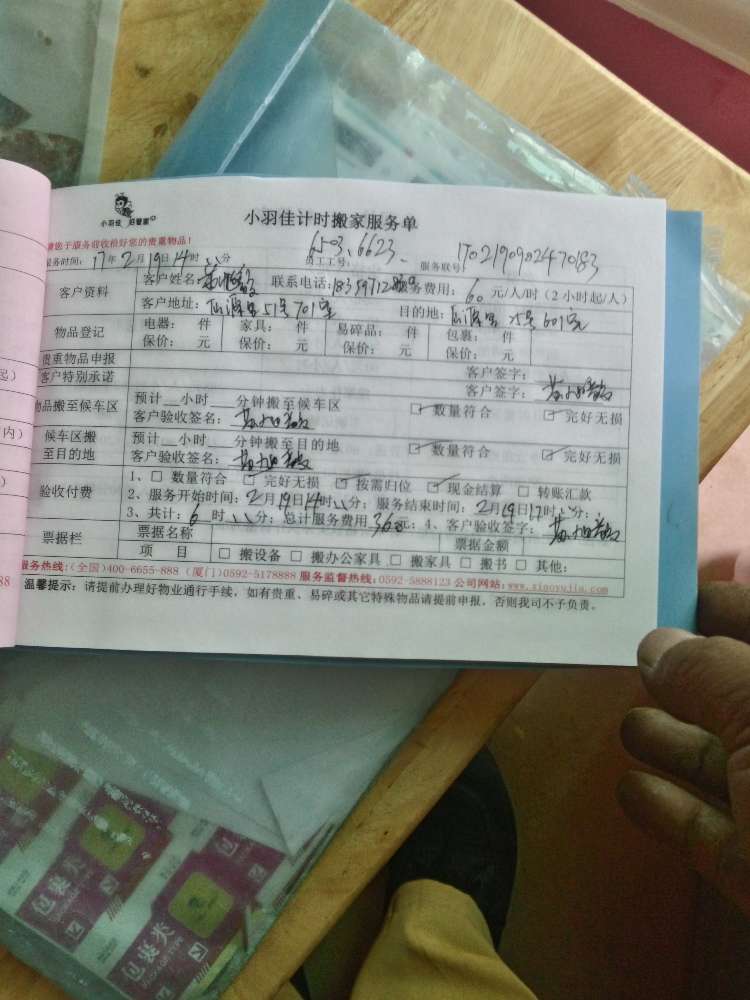 小羽佳 好管家
小羽佳计时搬家服务单
请您于服务前收拾好您的贵重物品!
6403、6623、
服务时间: 17年2月19日14时 分 员工工号: 服务联号: 170219090247083
客户资料 客户姓名: 联系电话: 服务费用: 60 元/人/时(2小时起/人)
客户地址: 51号701室 目的地: 601室
物品登记 电器: 件 家具: 件 易碎品: 件 包裹: 件
保价: 元 保价: 元 保价: 元 保价: 元
贵重物品申报 客户签字:
客户特别承诺 客户签字:
物品搬至候车区 预计 小时 分钟搬至候车区 ☑ 数量符合 ☑ 完好无损
客户验收签名:
候车区搬至目的地 预计 小时 分钟搬至目的地 ☑ 数量符合 ☑ 完好无损
客户验收签名:
验收付费 1、□ 数量符合 ☑ 完好无损 ☑ 按需归位 ☑ 现金结算 □ 转账汇款
2、服务开始时间: 2月19日14时 分; 服务结束时间: 2月19日17时 分;
3、共计: 6 时 分; 总计服务费用 360 元; 4、客户验收签字:
票据栏 票据名称 票据金额
项 目 □ 搬设备 □ 搬办公家具 □ 搬家具 □ 搬书 □ 其他:
服务热线:(全国)400-6655-888 (厦门)0592-5178888 服务监督热线:0592-5888123 公司网站:www.xiaoyujia.com
温馨提示: 请提前办理好物业通行手续, 如有贵重、易碎或其它特殊物品请提前申报, 否则我司不予负责。
包裹类
包裹类